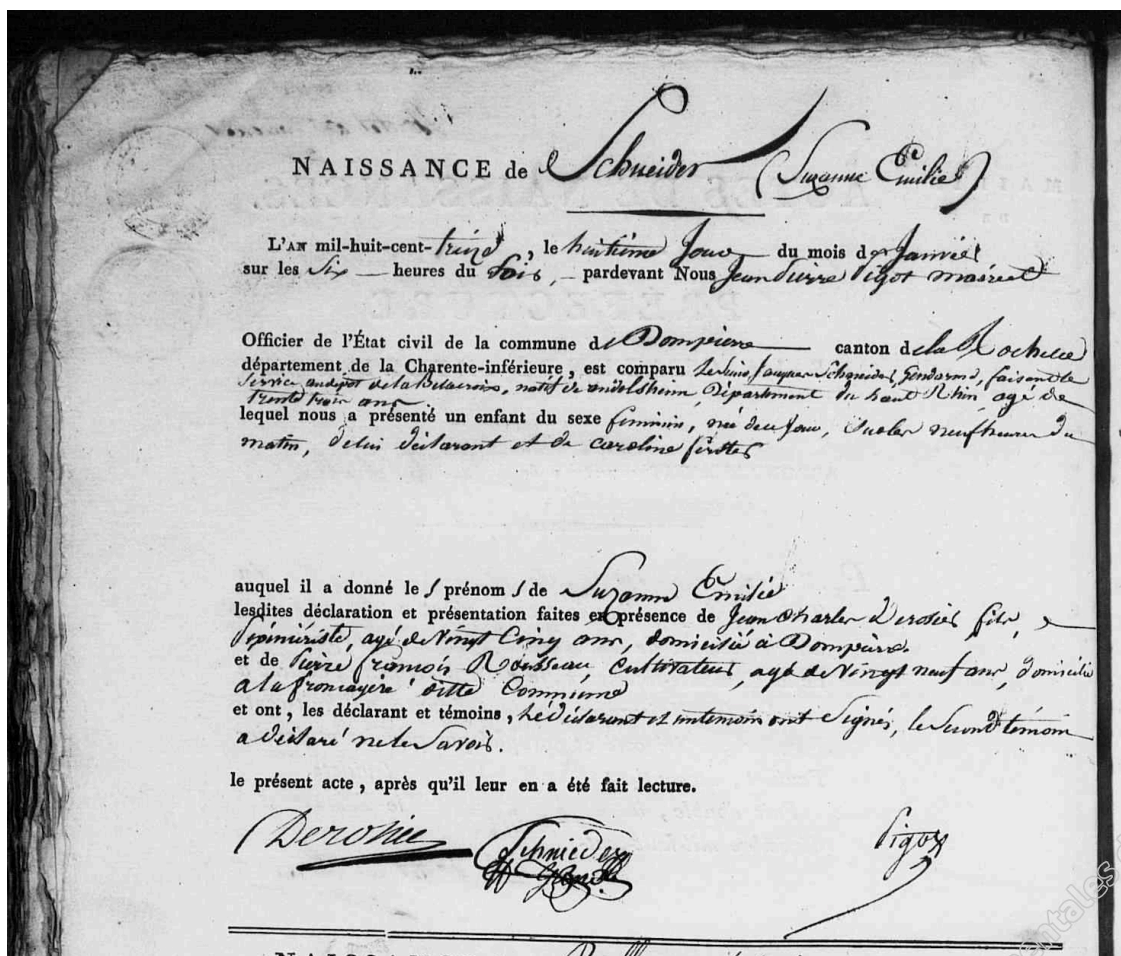 NAISSANCE de Schneider (Suzanne Emilie)
L'AN mil-huit-cent-treize, le huitième Jour du mois de Janvier
sur les Six heures du Soir, pardevant Nous Jean Pierre Pigot maire
Officier de l'État civil de la commune de Dompierre canton de la Rochelle
département de la Charente-inférieure, est comparu Schneider, Gendarme, faisant le
Service au depot de la Belacroix, natif de andolsheim, Département du haut Rhin, agé de
trente trois ans
lequel nous a présenté un enfant du sexe feminin, née de ce Jour, Sur les neuf heures du
matin, de lui déclarant et de caroline
auquel il a donné le s prénom s de Suzanne Emilie
lesdites déclaration et présentation faites en présence de Jean Charles Derosier fils,
Pépiniériste, agé de Vingt Cinq ans, domicilié à Dompierre
et de Pierre François Rousseau, Cultivateur, agé de Vingt neuf ans, domicilié
a la ditte Commune
et ont, les déclarant et témoins, Le déclarant et un temoin ont Signés, le Second témoin
a déclaré ne le Savoir.
le présent acte, après qu'il leur en a été fait lecture.
Schnieder Pigot